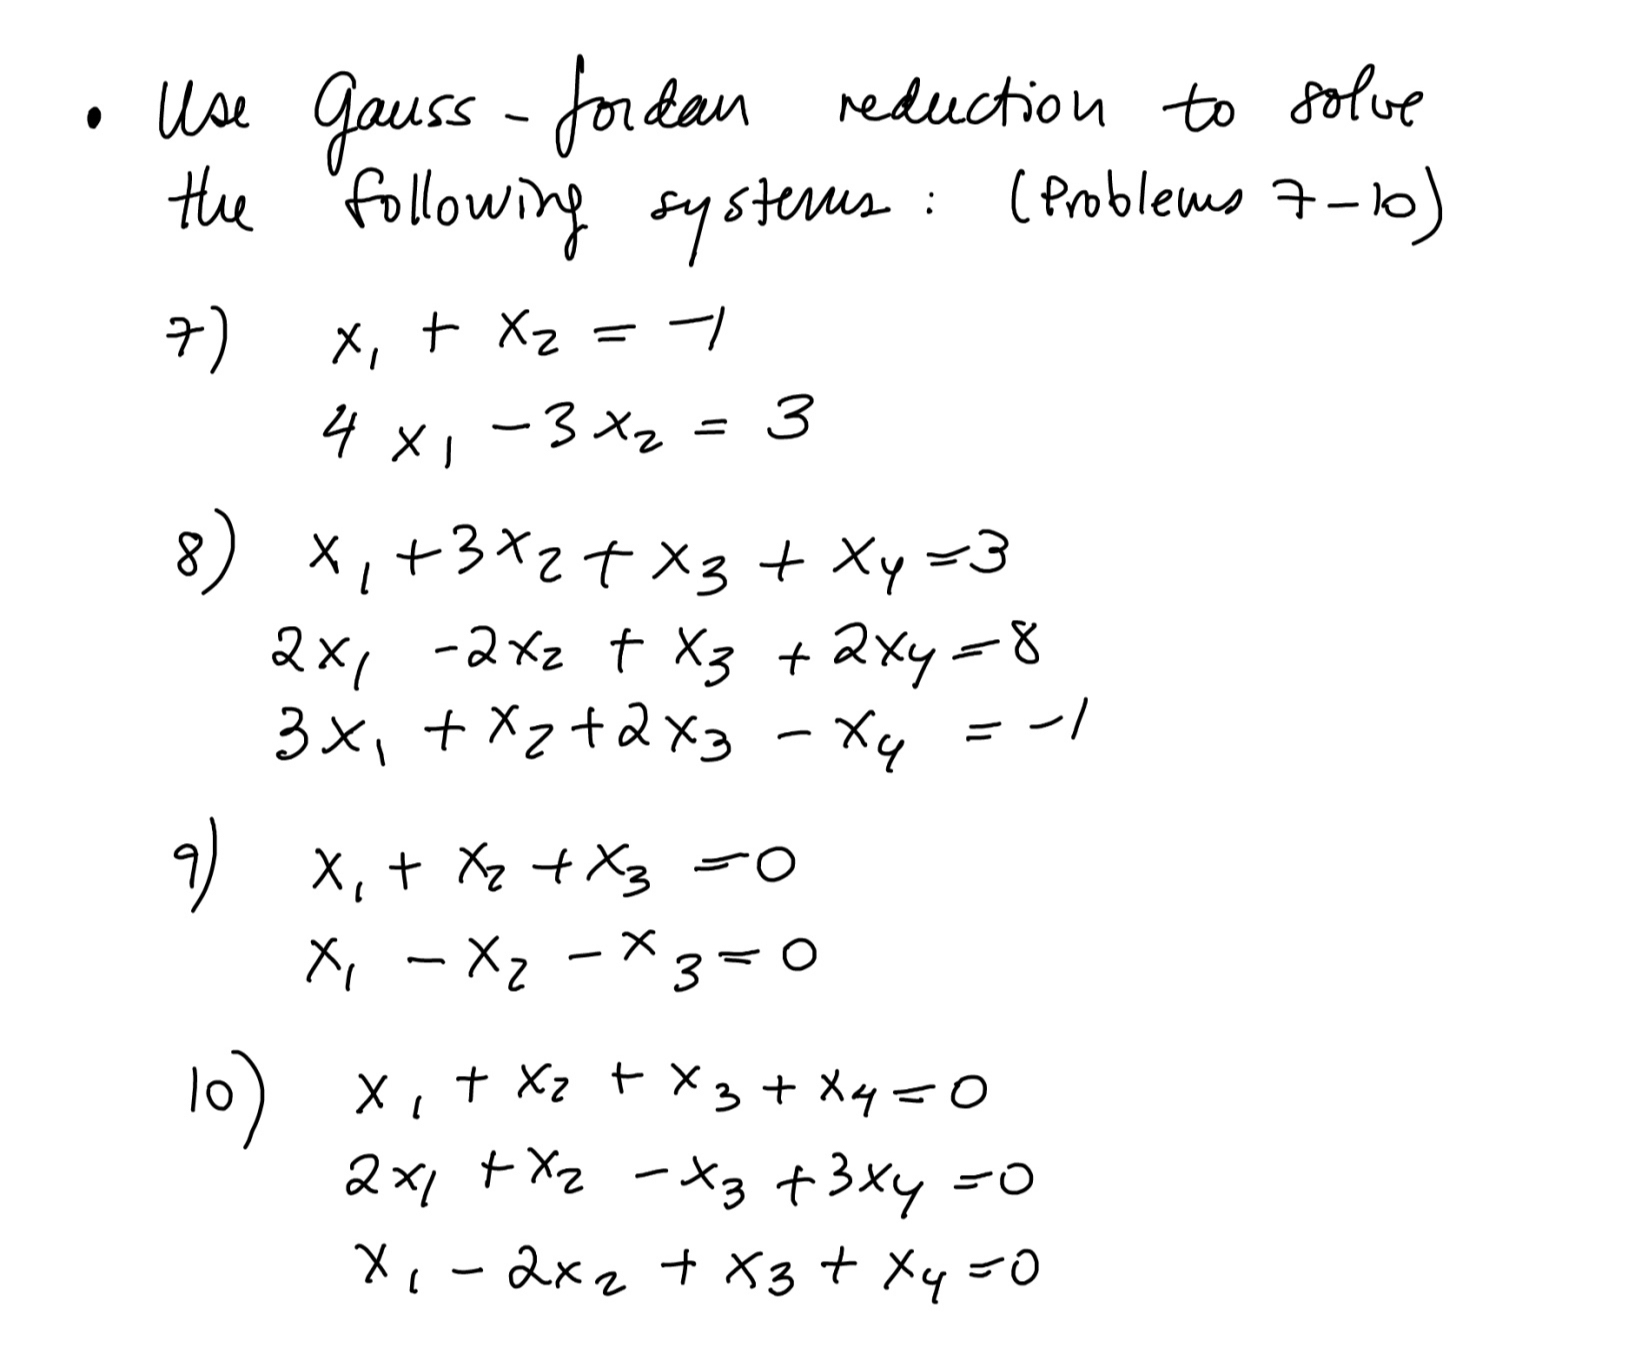 • Use Gauss-Jordan reduction to solve
the following systems : (Problems 7-10)
7) x₁ + x₂ = -1
4x₁ -3x₂ = 3
8) x₁ +3x₂ + x₃ + x₄ =3
2x₁ -2x₂ + x₃ +2x₄ =8
3x₁ + x₂ +2x₃ - x₄ = -1
9) x₁ + x₂ +x₃ =0
x₁ - x₂ - x₃ =0
10) x₁ + x₂ + x₃ + x₄ =0
2x₁ +x₂ -x₃ +3x₄ =0
x₁ - 2x₂ + x₃ + x₄ =0